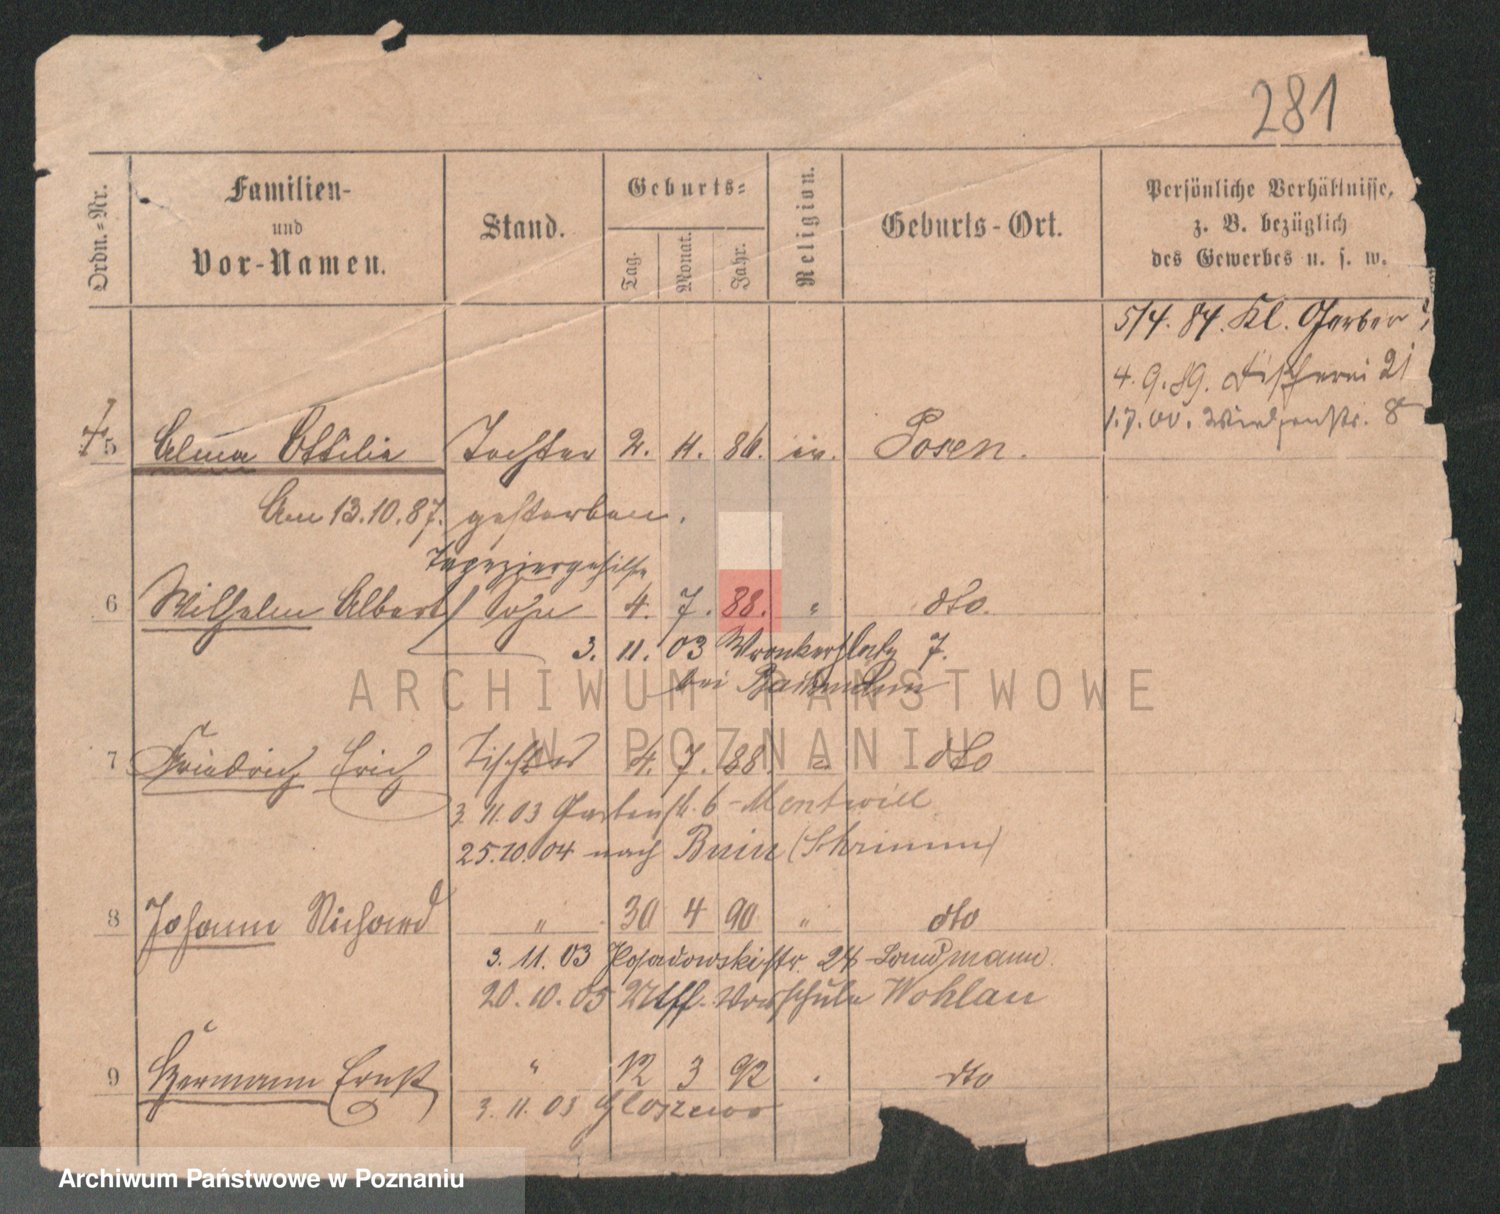 281
Ordn.-Nr.
Familien-
und
Vor-Namen.
Stand.
Geburts-
Tag.
Monat.
Jahr.
Religion.
Geburts-Ort.
Persönliche Verhältnisse,
z. B. bezüglich
des Gewerbes u. s. w.
5/4. 84. Kl. Gerber
4. 9. 89. Fischerei 21
1. 7. 00. 8
5 Alma Ottilie Tochter 2. 11. 86. ev. Posen.
Am 13.10.87. gestorben.
Tapeziergehilfe
6 Wilhelm Albert Sohn 4. 7. 88. " dto.
3. 11. 03 Wronkerplatz 7.
bei
7 Friedrich Erich Tischler 4. 7. 88. " dto
3. 11. 03 Gartenstr. 6 - Montwill
25.10.04 nach Bnin (Schrimm)
8 Johann Richard " 30 4 90 " dto
3. 11. 03 Posadowskistr. 24 Landmann.
20. 10. 05 Utffz. Vorschule Wohlau
9 Hermann Ernst " 12 3 92 " dto
3. 11. 03 Gloszewo
ARCHIWUM PAŃSTWOWE
W POZNANIU
Archiwum Państwowe w Poznaniu